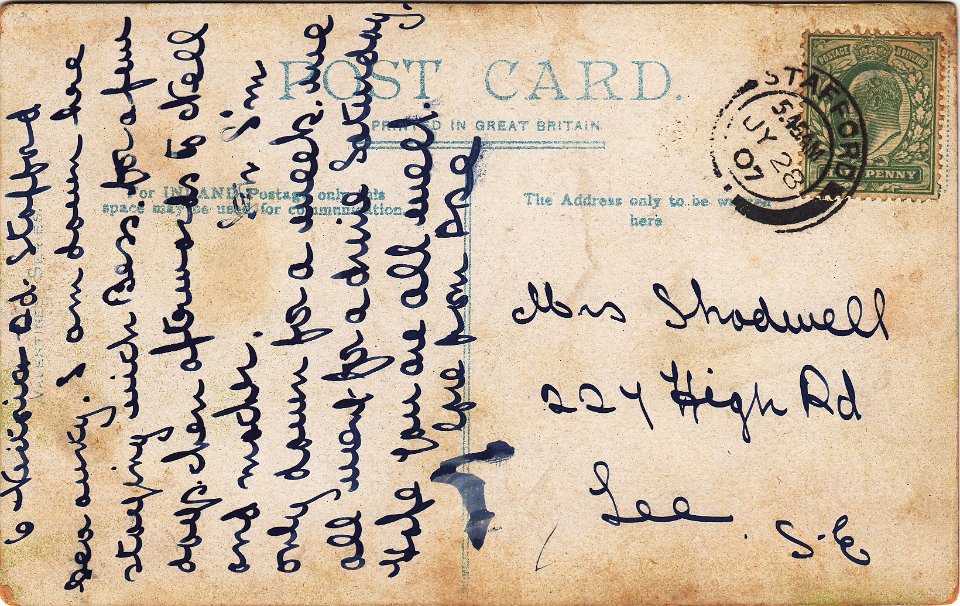 POST CARD.
PRINTED IN GREAT BRITAIN.
For INLAND Postage only this
space may be used for communication.
The Address only to be written
here
POSTAGE REVENUE
PENNY
STAFFORD
5.45AM
JY 28
07
Mrs Shodwell
224 High Rd
Lee
S.E
6 Rd Stafford
Dear aunty. I am down here
staying with Bess. for a few
days. then afterwards to Nell
and mother. Jim
only down for a week. we
all went for a drive Saturday.
Hope you are all well.
love from